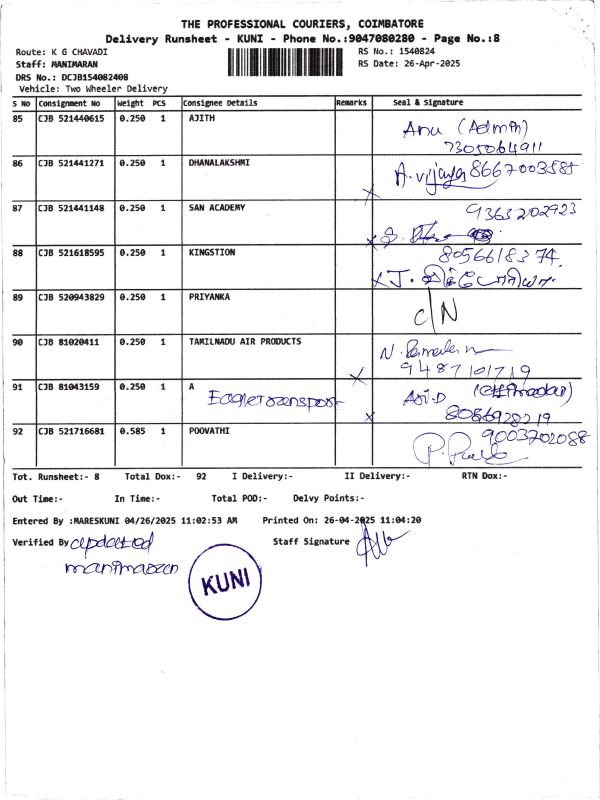 THE PROFESSIONAL COURIERS, COIMBATORE
Delivery Runsheet - KUNI - Phone No.:9047080280 - Page No.:8
Route: K G CHAVADI RS No.: 1540824
Staff: MANIMARAN RS Date: 26-Apr-2025
DRS No.: DCJB154082408
Vehicle: Two Wheeler Delivery
S No Consignment No Weight PCS Consignee Details Remarks Seal & Signature
85 CJB 521440615 0.250 1 AJITH Anu (Admin)
7305064911
86 CJB 521441271 0.250 1 DHANALAKSHMI A. 8667003585
87 CJB 521441148 0.250 1 SAN ACADEMY 9363202923
88 CJB 521618595 0.250 1 KINGSTION 8056618374
X J.
89 CJB 520943829 0.250 1 PRIYANKA C/N
90 CJB 81020411 0.250 1 TAMILNADU AIR PRODUCTS N.
9487101719
91 CJB 81043159 0.250 1 A
92 CJB 521716681 0.585 1 POOVATHI 9003702088
P.
Tot. Runsheet:- 8 Total Dox:- 92 I Delivery:- II Delivery:- RTN Dox:-
Out Time:- In Time:- Total POD:- Delvy Points:-
Entered By :MARESKUNI 04/26/2025 11:02:53 AM Printed On: 26-04-2025 11:04:20
Verified By updated Staff Signature
manimaran
KUNI